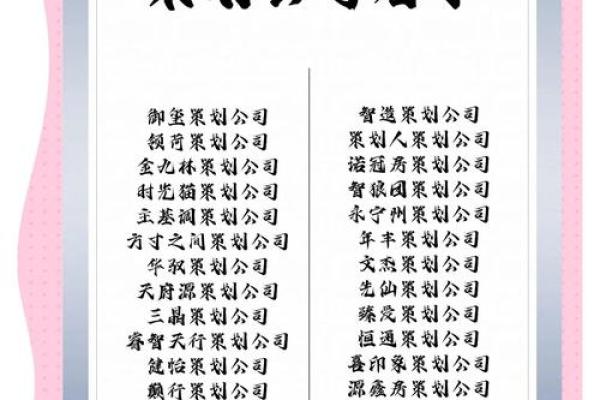 御玺策划公司
领荷策划公司
金九林策划公司
时光猫策划公司
主基调策划公司
方寸之间策划公司
华驭策划公司
天府源策划公司
三晶策划公司
睿智天行策划公司
健怡策划公司
颠行策划公司
智造策划公司
策划人策划公司
诺冠房策划公司
智狼团策划公司
永宁州策划公司
年丰策划公司
文杰策划公司
先仙策划公司
臻受策划公司
恒通策划公司
喜印象策划公司
源鑫房策划公司